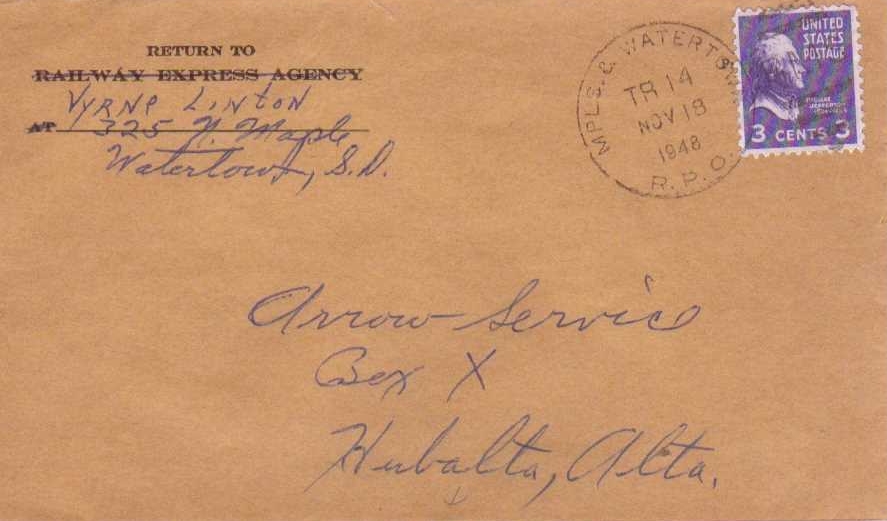 RETURN TO
RAILWAY EXPRESS AGENCY
Vyrne Linton
AT 325 N. Maple
Watertown, S.D.
MPLS. & WATERTOWN
TR 14
NOV 18
1948
R.P.O.
UNITED
STATES
POSTAGE
THOMAS
JEFFERSON
3 CENTS 3
Arrow Service
Box X
Hubalta, Alta.